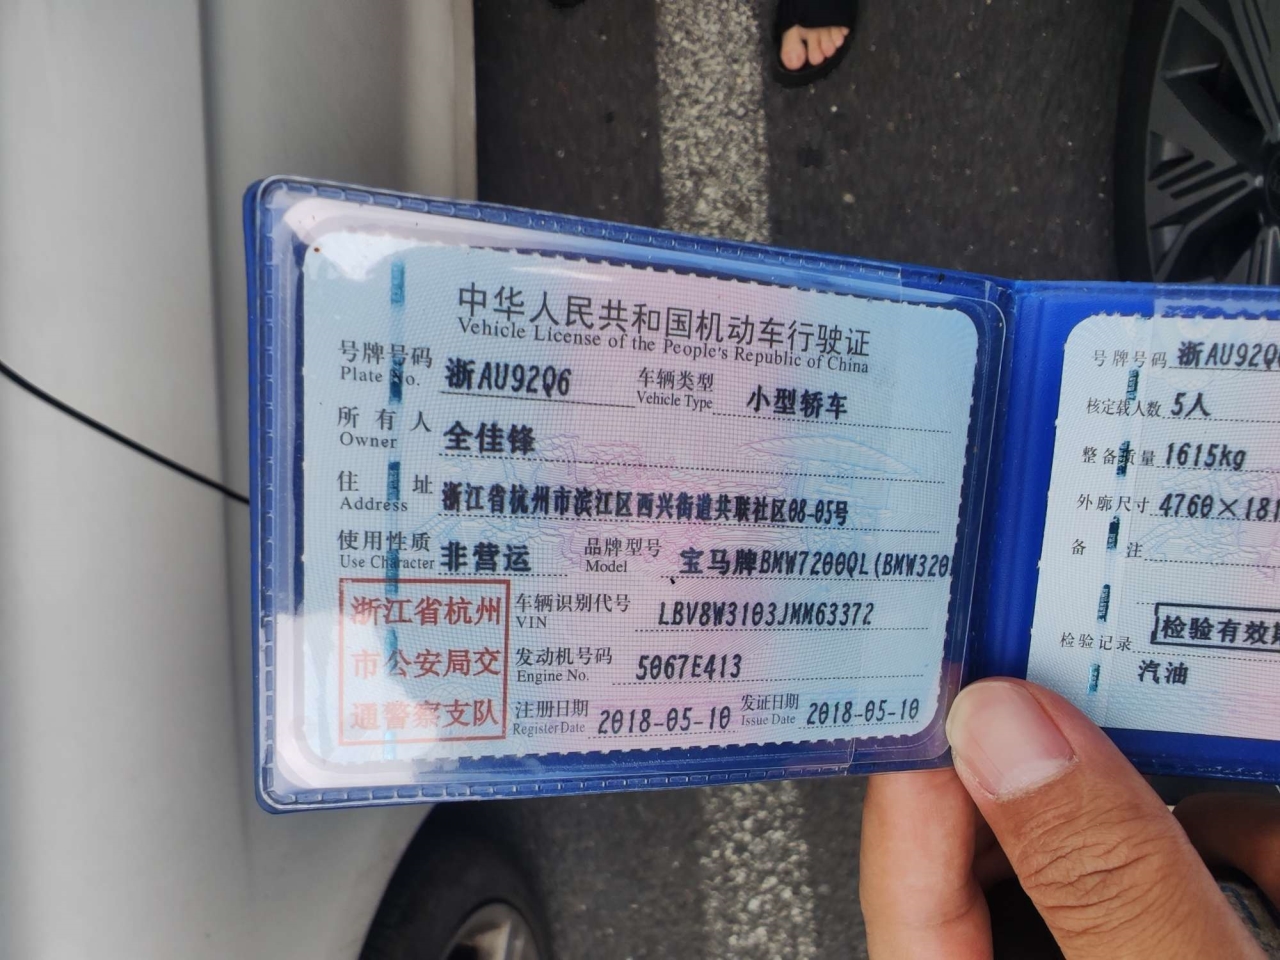 中华人民共和国机动车行驶证
Vehicle License of the People's Republic of China
号牌号码 浙AU92Q6 车辆类型 小型轿车
Plate No. Vehicle Type
所有人 全佳锋
Owner
住址 浙江省杭州市滨江区西兴街道共联社区08-05号
Address
使用性质 非营运 品牌型号 宝马牌BMW7200QL(BMW320
Use Character Model
浙江省杭州
市公安局交
通警察支队
车辆识别代号 LBV8W3103JMM63372
VIN
发动机号码 5067E413
Engine No.
注册日期 2018-05-10 发证日期 2018-05-10
Register Date Issue Date
号牌号码 浙AU92Q
核定载人数 5人
整备质量 1615kg
外廓尺寸 4760×181
备注
检验有效
检验记录
汽油